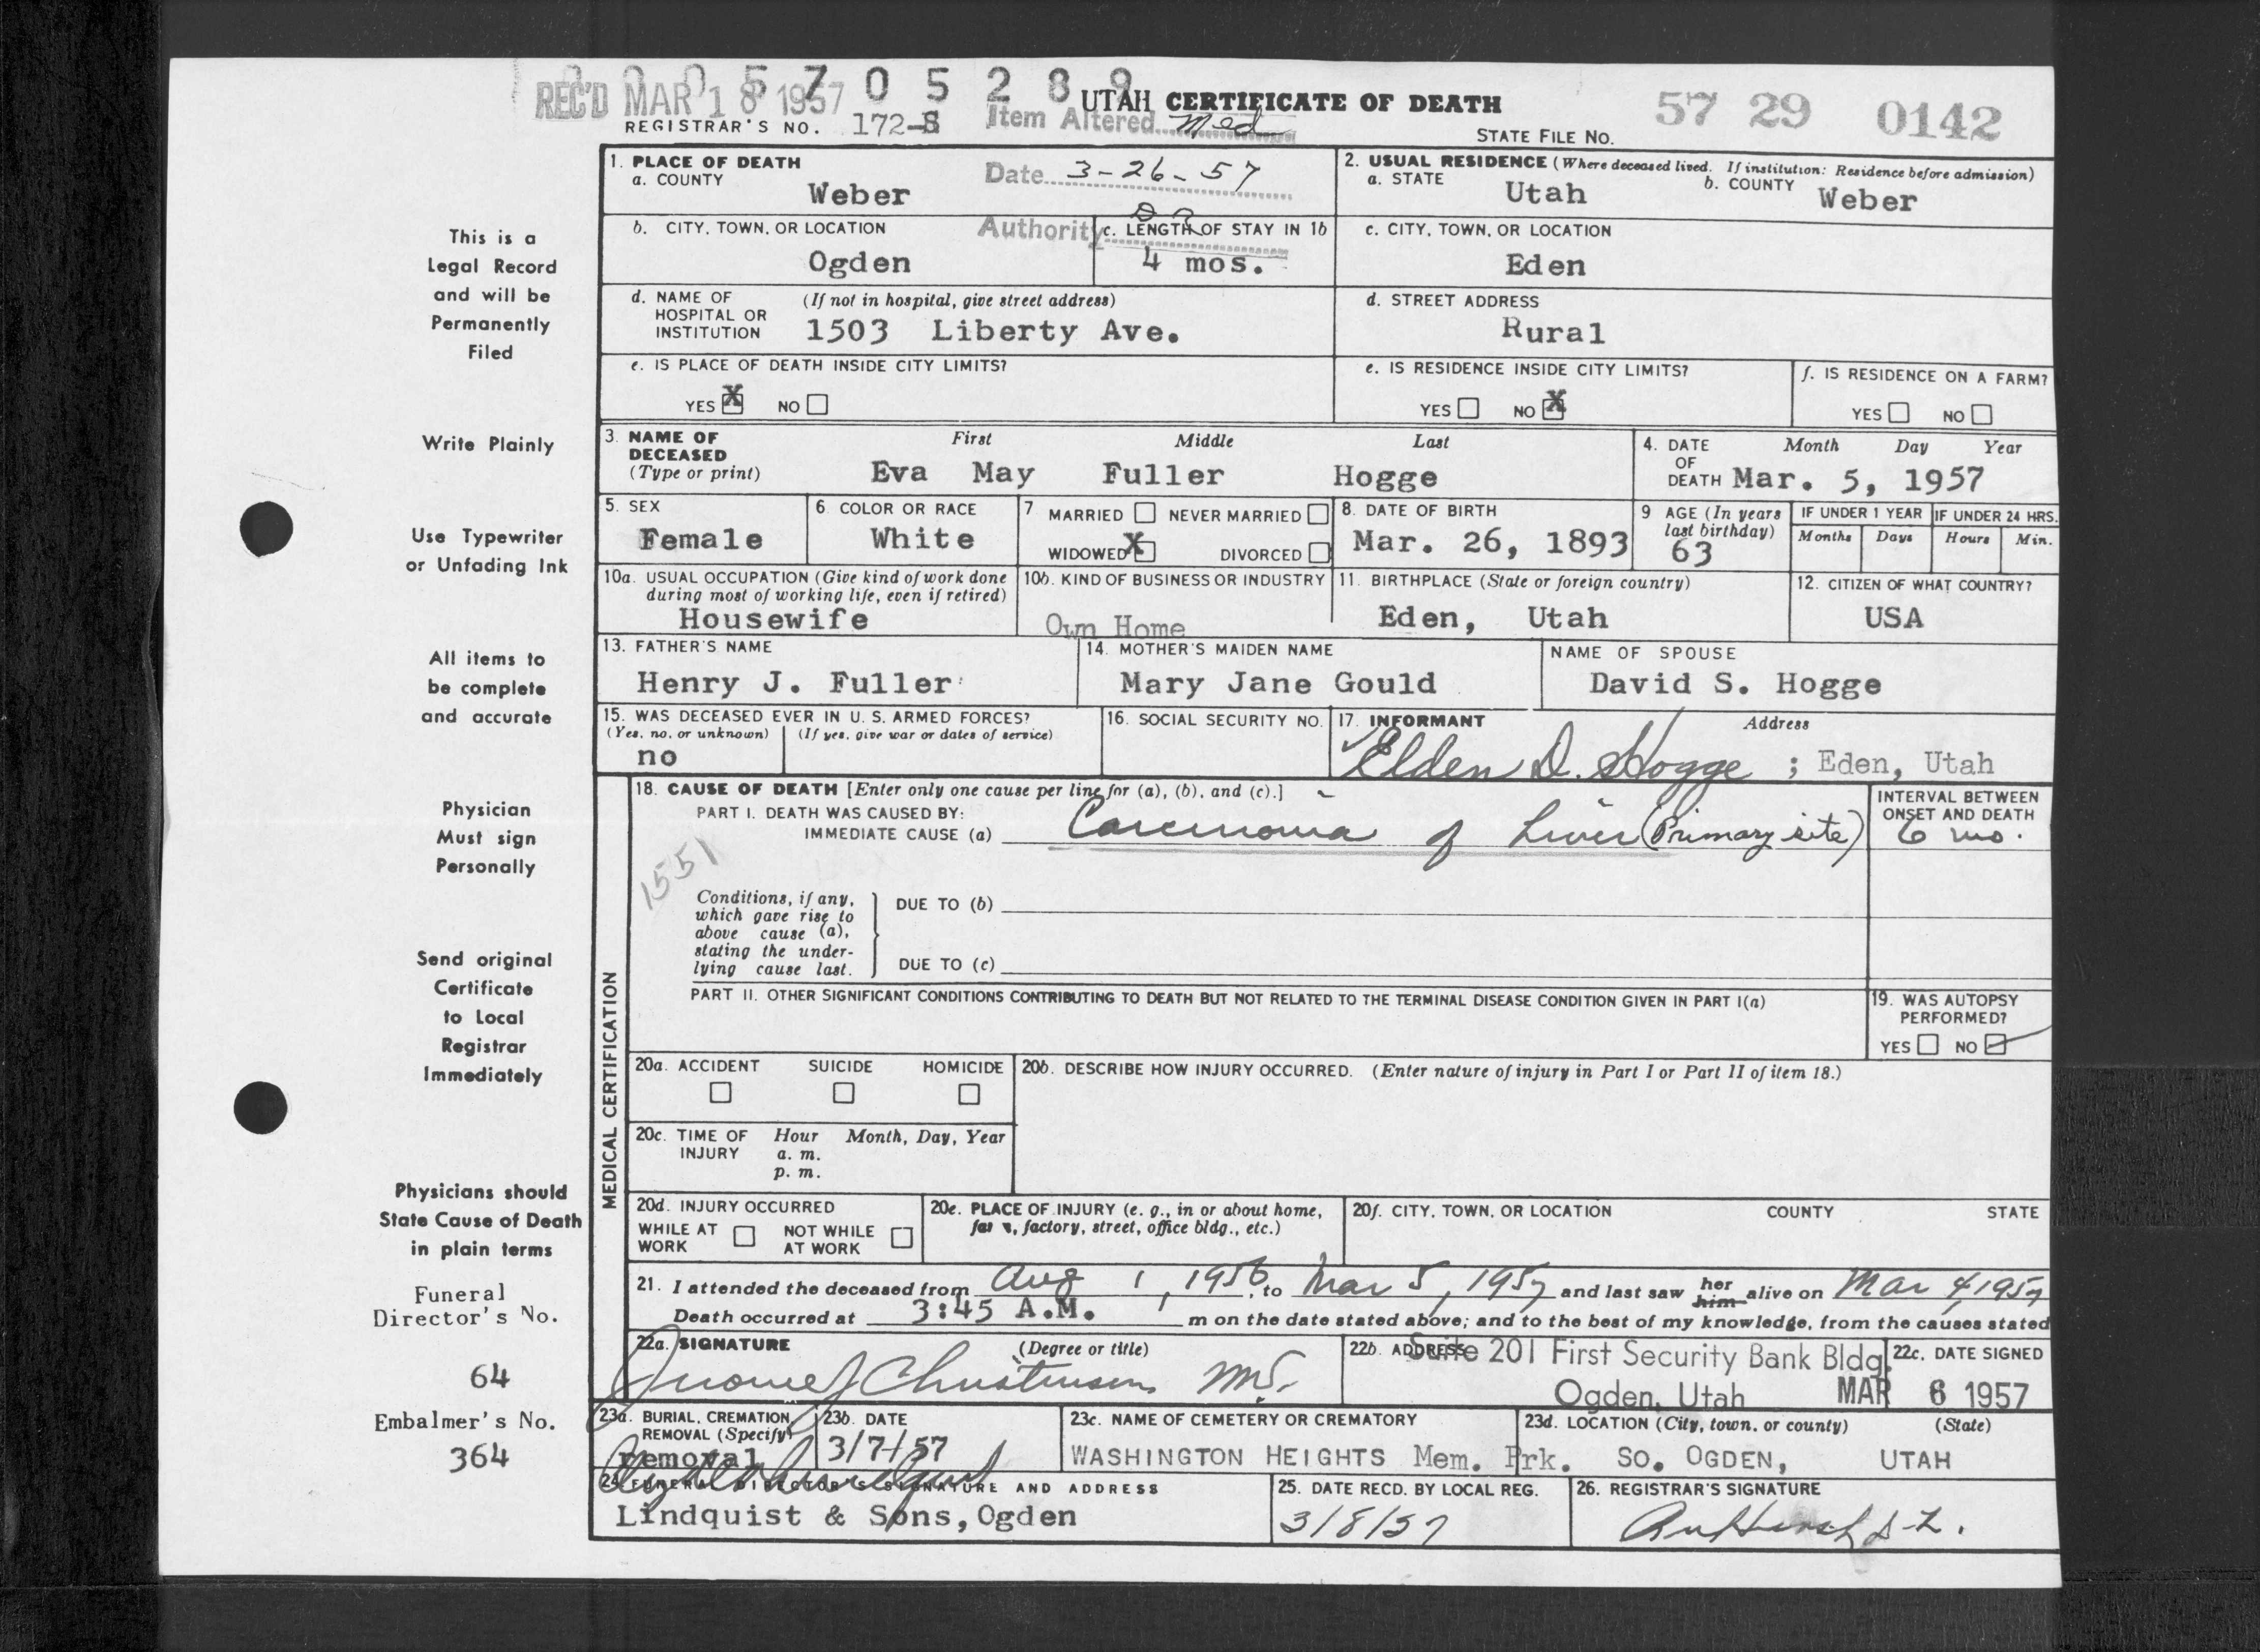 0 0 0 5 7 0 5 2 8 9
REC'D MAR 18 1957
UTAH CERTIFICATE OF DEATH
57 29 0142
REGISTRAR'S NO. 172-8
Item Altered Med
STATE FILE NO.
1. PLACE OF DEATH
a. COUNTY
Weber
Date 3-26-57
2. USUAL RESIDENCE (Where deceased lived. If institution: Residence before admission)
a. STATE
Utah
b. COUNTY
Weber
b. CITY, TOWN, OR LOCATION
Ogden
Authority
c. LENGTH OF STAY IN 1b
4 mos.
c. CITY, TOWN, OR LOCATION
Eden
d. NAME OF HOSPITAL OR INSTITUTION
(If not in hospital, give street address)
1503 Liberty Ave.
d. STREET ADDRESS
Rural
e. IS PLACE OF DEATH INSIDE CITY LIMITS?
YES X NO
e. IS RESIDENCE INSIDE CITY LIMITS?
YES NO X
f. IS RESIDENCE ON A FARM?
YES NO
3. NAME OF DECEASED
(Type or print)
First Middle Last
Eva May Fuller Hogge
4. DATE OF DEATH
Month Day Year
Mar. 5, 1957
5. SEX
Female
6. COLOR OR RACE
White
7 MARRIED NEVER MARRIED
WIDOWED X DIVORCED
8. DATE OF BIRTH
Mar. 26, 1893
9 AGE (In years last birthday)
63
IF UNDER 1 YEAR
Months Days
IF UNDER 24 HRS.
Hours Min.
10a. USUAL OCCUPATION (Give kind of work done during most of working life, even if retired)
Housewife
10b. KIND OF BUSINESS OR INDUSTRY
Own Home
11. BIRTHPLACE (State or foreign country)
Eden, Utah
12. CITIZEN OF WHAT COUNTRY?
USA
13. FATHER'S NAME
Henry J. Fuller
14. MOTHER'S MAIDEN NAME
Mary Jane Gould
NAME OF SPOUSE
David S. Hogge
15. WAS DECEASED EVER IN U. S. ARMED FORCES?
(Yes, no, or unknown) (If yes, give war or dates of service)
no
16. SOCIAL SECURITY NO.
17. INFORMANT Address
Elden D. Hogge ; Eden, Utah
MEDICAL CERTIFICATION
18. CAUSE OF DEATH [Enter only one cause per line for (a), (b), and (c).]
PART I. DEATH WAS CAUSED BY:
IMMEDIATE CAUSE (a) Carcinoma of Liver (Primary site)
INTERVAL BETWEEN ONSET AND DEATH
6 mo.
1551
Conditions, if any, which gave rise to above cause (a), stating the underlying cause last.
DUE TO (b)
DUE TO (c)
PART II. OTHER SIGNIFICANT CONDITIONS CONTRIBUTING TO DEATH BUT NOT RELATED TO THE TERMINAL DISEASE CONDITION GIVEN IN PART I(a)
19. WAS AUTOPSY PERFORMED?
YES NO
20a. ACCIDENT SUICIDE HOMICIDE
20b. DESCRIBE HOW INJURY OCCURRED. (Enter nature of injury in Part I or Part II of item 18.)
20c. TIME OF INJURY
Hour Month, Day, Year
a. m.
p. m.
20d. INJURY OCCURRED
WHILE AT WORK
NOT WHILE AT WORK
20e. PLACE OF INJURY (e. g., in or about home, factory, street, office bldg., etc.)
20f. CITY, TOWN, OR LOCATION COUNTY STATE
21. I attended the deceased from Aug 1, 1956, to Mar 5, 1957 and last saw her him alive on Mar 4, 1957
Death occurred at 3:45 A.M. m on the date stated above; and to the best of my knowledge, from the causes stated
22a. SIGNATURE (Degree or title)
Christensen MD.
22b. ADDRESS
Suite 201 First Security Bank Bldg.
Ogden, Utah
22c. DATE SIGNED
MAR 6 1957
23a. BURIAL, CREMATION, REMOVAL (Specify)
removal
23b. DATE
3/7/57
23c. NAME OF CEMETERY OR CREMATORY
WASHINGTON HEIGHTS Mem. Prk.
23d. LOCATION (City, town, or county) (State)
SO. OGDEN, UTAH
24. FUNERAL DIRECTOR'S SIGNATURE AND ADDRESS
Lindquist & Sons, Ogden
25. DATE RECD. BY LOCAL REG.
3/8/57
26. REGISTRAR'S SIGNATURE
This is a
Legal Record
and will be
Permanently
Filed
Write Plainly
Use Typewriter
or Unfading Ink
All items to
be complete
and accurate
Physician
Must sign
Personally
Send original
Certificate
to Local
Registrar
Immediately
Physicians should
State Cause of Death
in plain terms
Funeral
Director's No.
64
Embalmer's No.
364